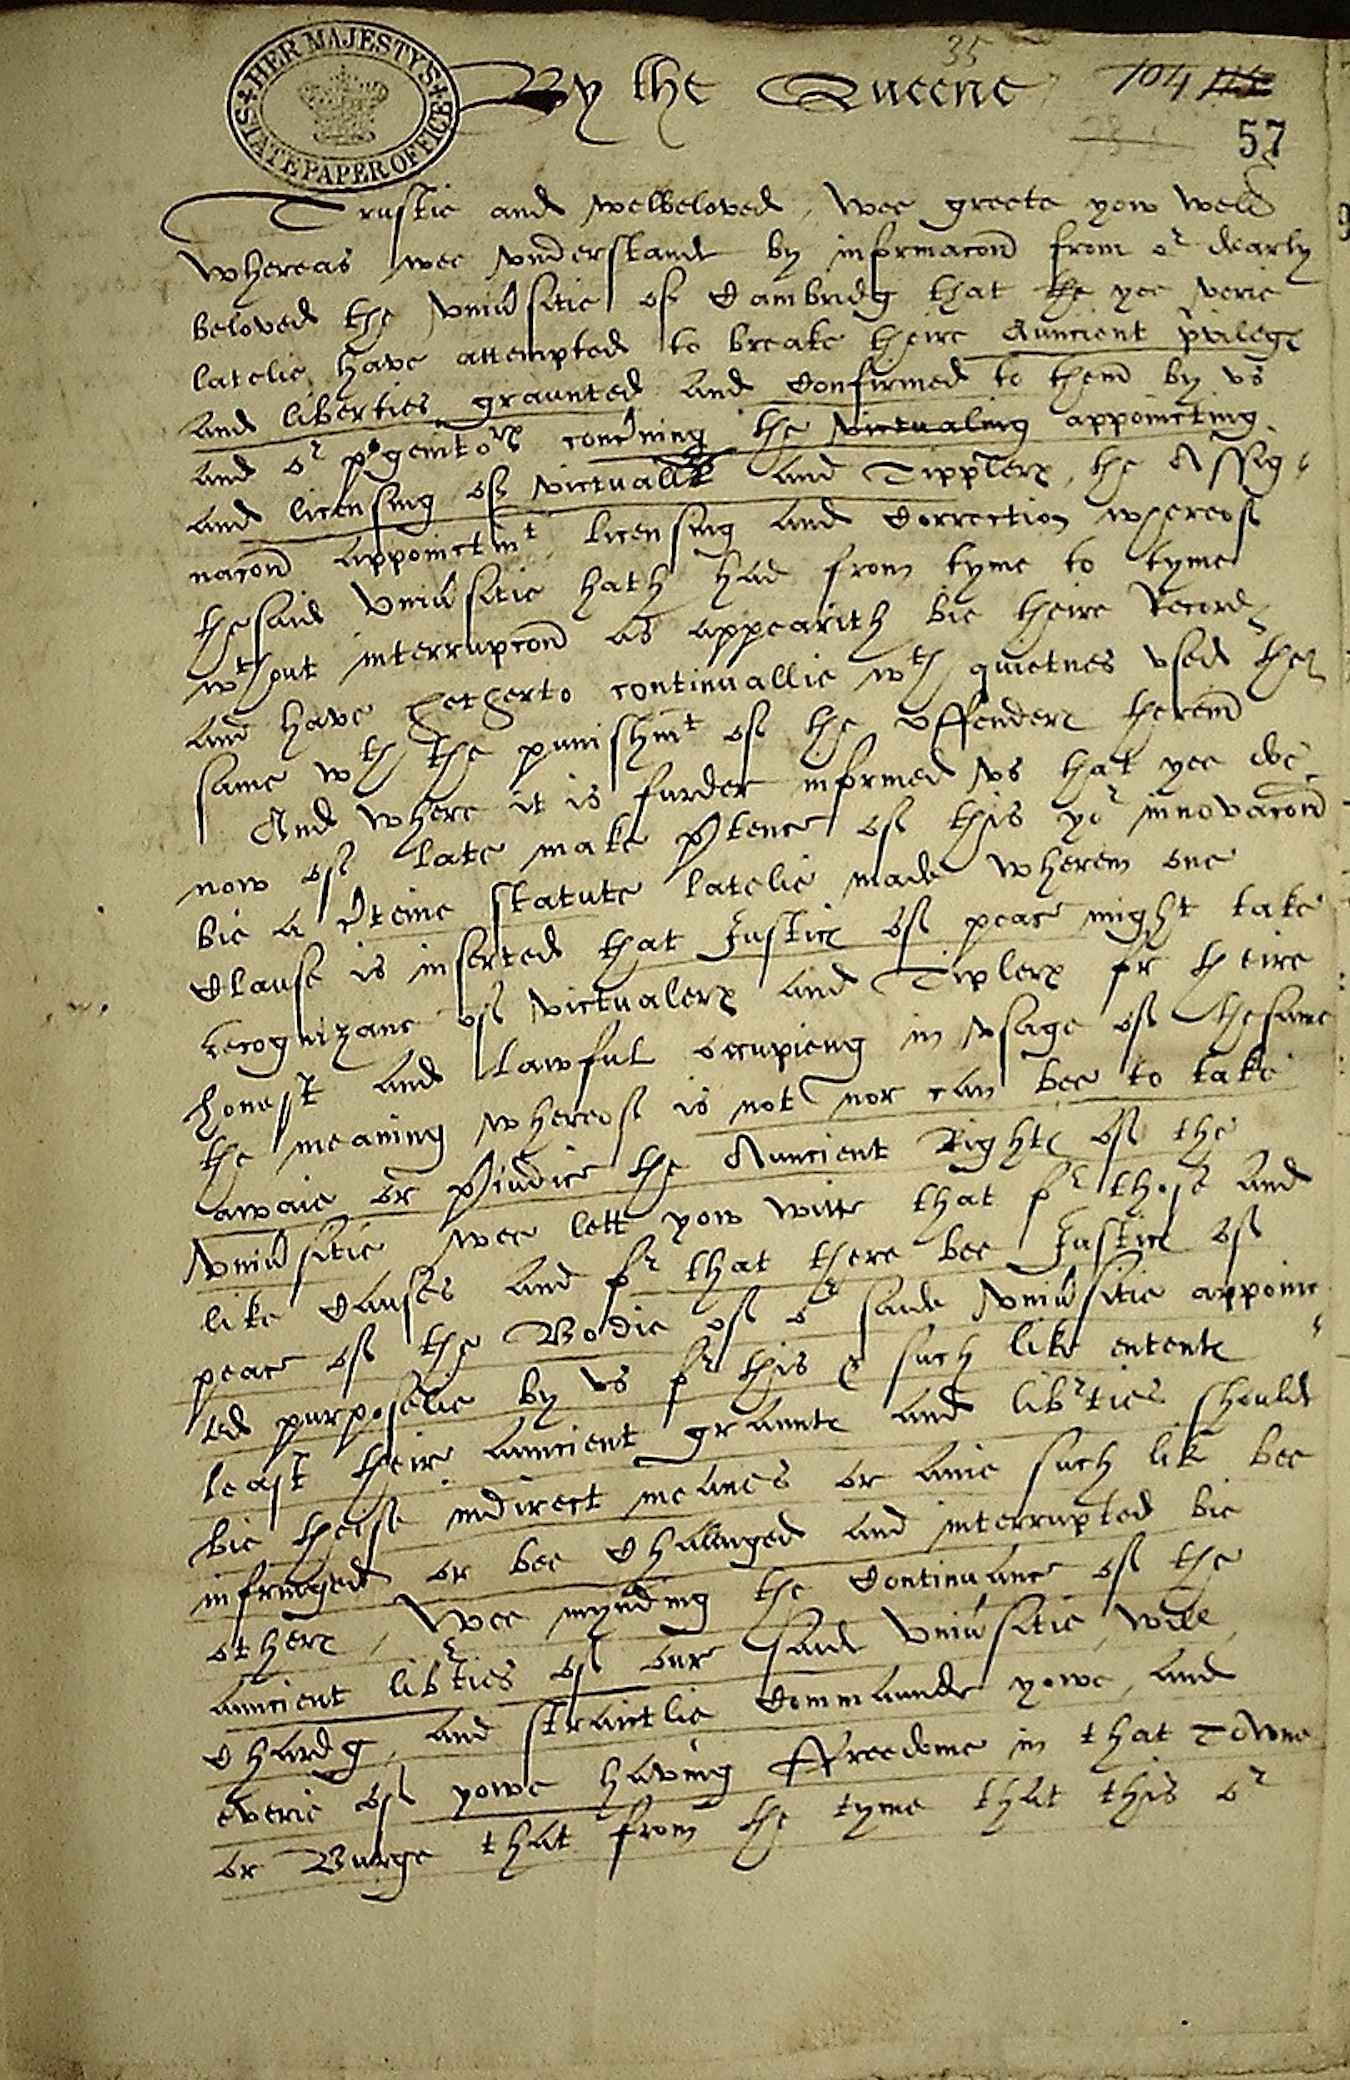 HER MAJESTY'S STATE PAPER OFFICE
35
By the Queene
104
57
Trustie and welbeloved, wee greete yow well
whereas wee vnderstande by informacon from or dearly
beloved the vniusitie of Cambridg that the yee verie
latelie have attempted to breake theire Auncient privileges
and liberties graunted and Confirmed to them by vs
and or pgenitors concning the victualing appoincting
and licensing of victuallers and Tipplers, the Assig-
nacon appoinctmt licensing and Correction whereof
thesaid vniusitie hath had from tyme to tyme
wthout interrupcon as appearith bie theire Records
and have hetherto continuallie wth quietnes vsed the
same wth the punishmt of the offenders therein
And where it is furder informed vs that yee doe
now of late make ptence of this yor innovacon
bie a cteine statute latelie made wherein one
Clause is inserted that Justices of peace might take
recognizanc of victualers and Tiplers for theire
honest and lawful occupieng in vsage of thesame
the meaning whereof is not nor can bee to take
awaie or piudice the Auncient Rights of the
vniusitie wee lett yow witte that for those and
like Clauses and for that there bee Justices of
peace of the Bodie of or saide vniusitie appoinc-
ted purposelie by vs for this & such like ententes
least their auncient graunts and libties should
bie theise indirect meanes or anie such like bee
infringed or bee Challenged and interrupted bie
others, Wee mynding the Continuance of the
auncient libties of our said vniusitie, will,
Chardg, and straictlie Commaunde yowe, and
everie of yowe having ffreedome in that Towne
or Burge that from the tyme that this or